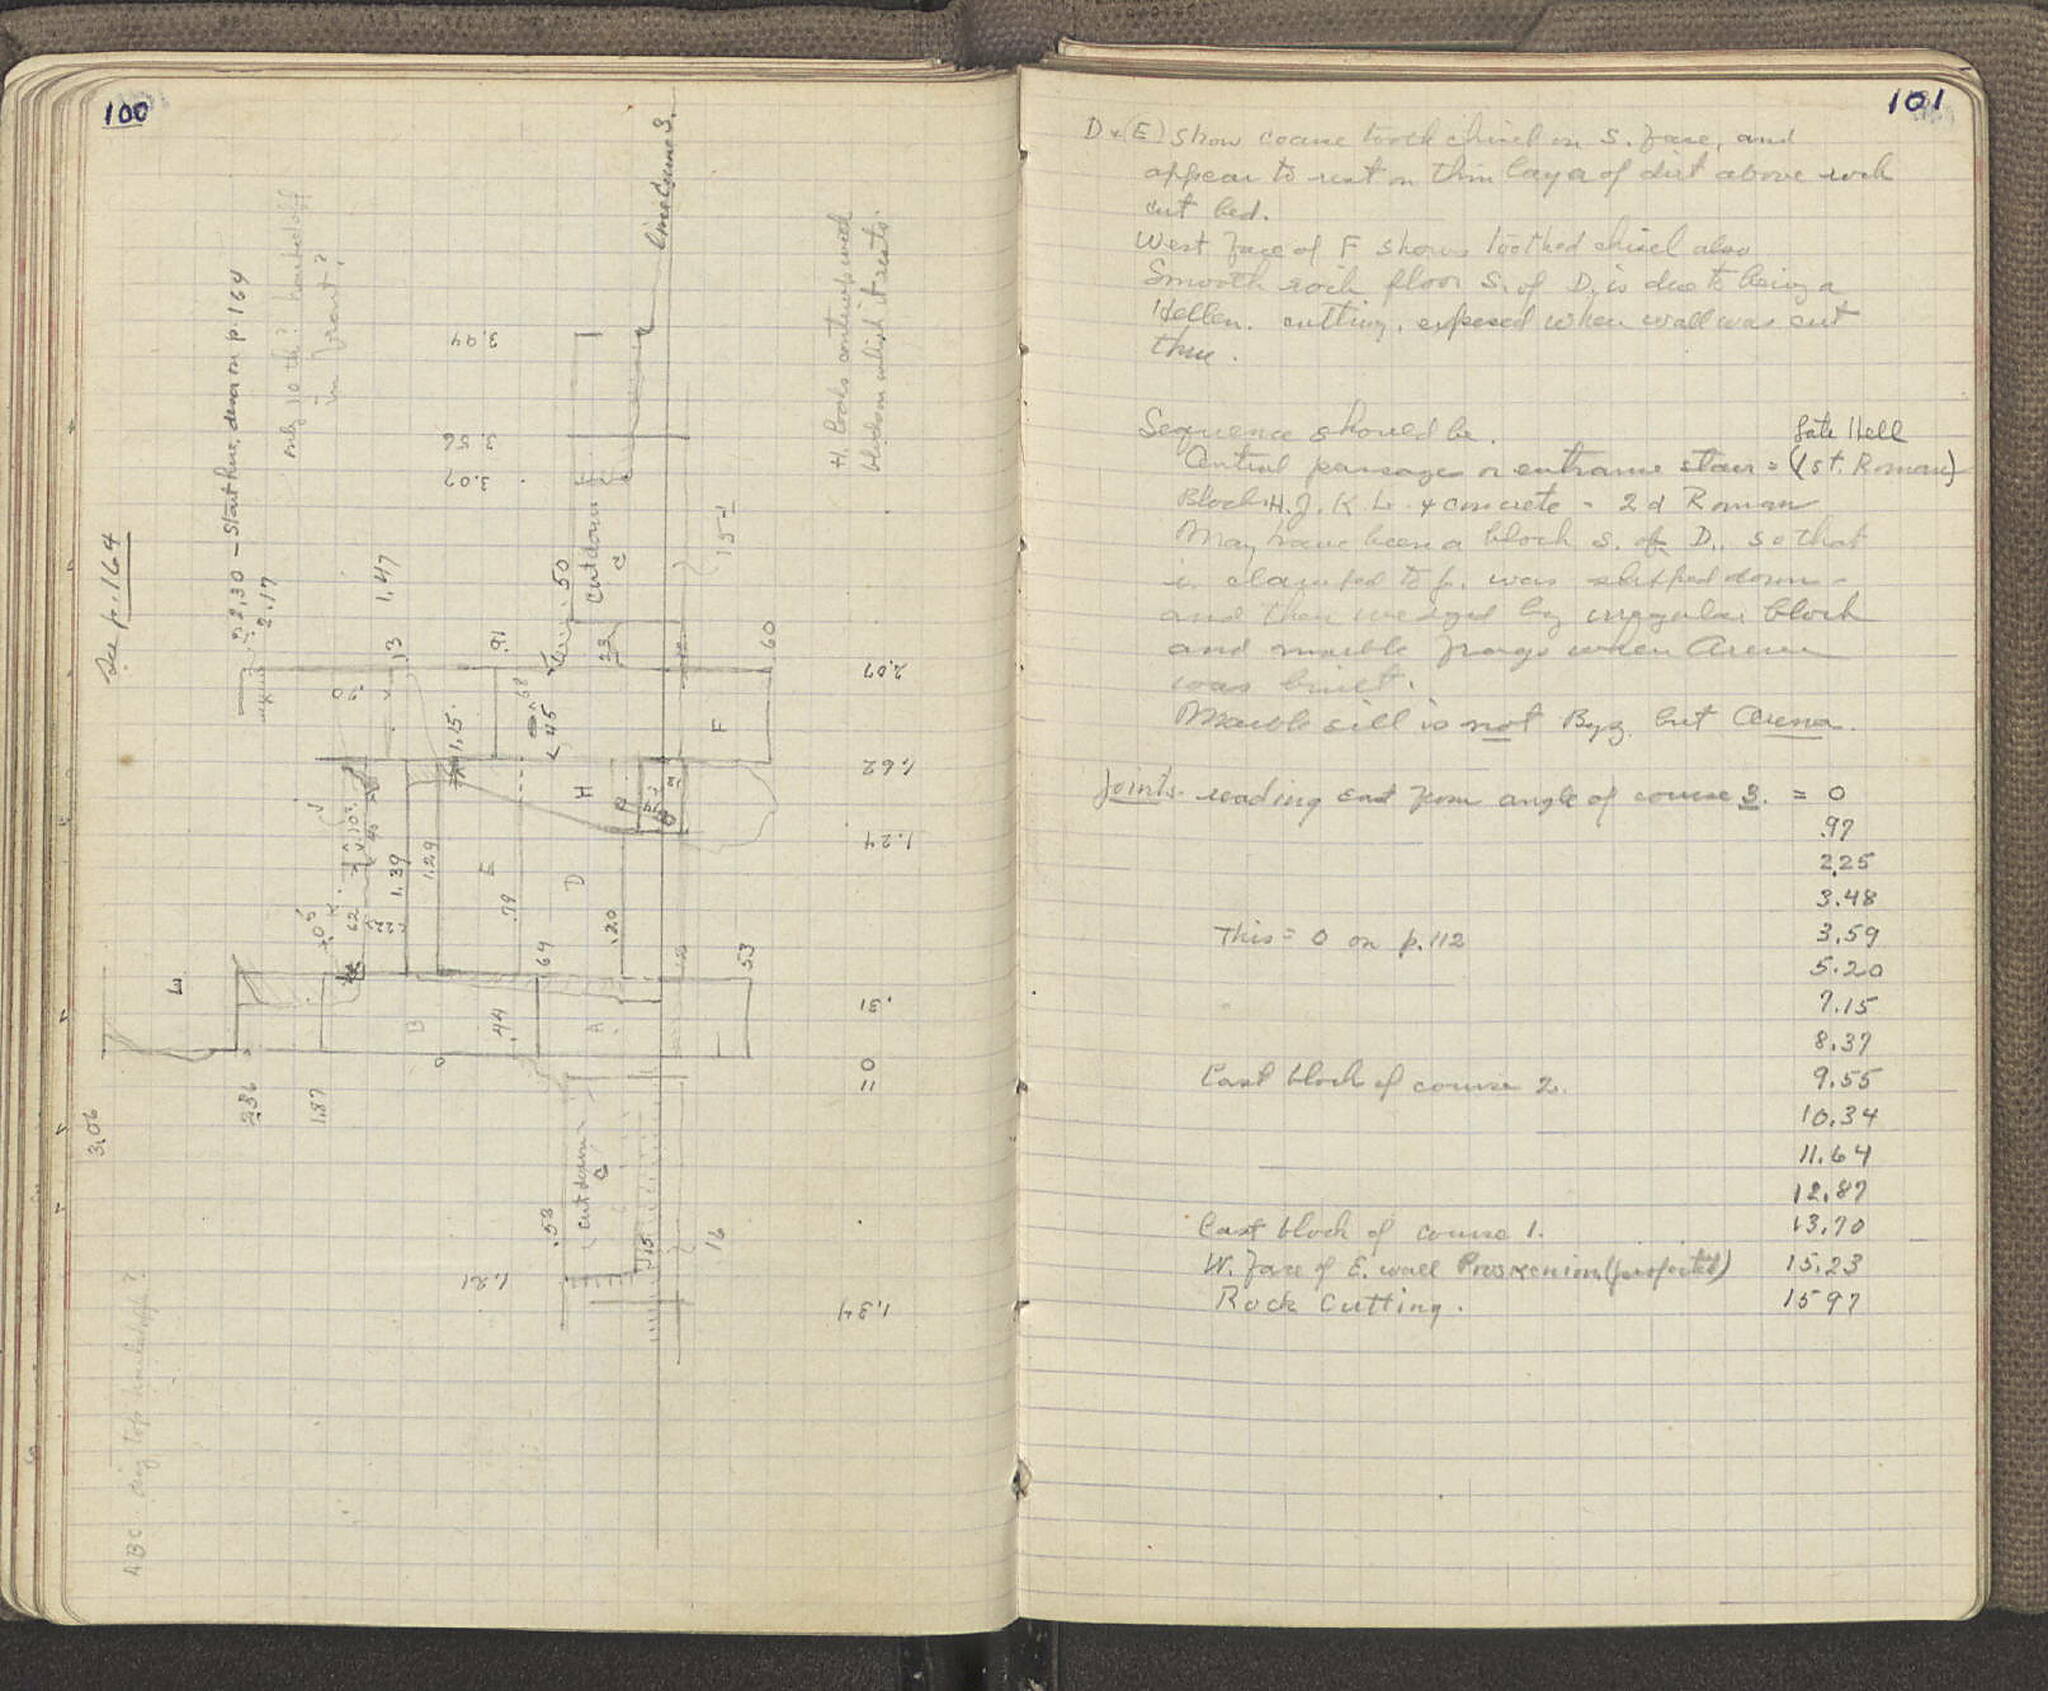 100
See p. 164
2.30 – Start here, desc on p. 164
2.17
only 10 th? hacked off
in front?
line Course 3.
H. looks contemp with
block on which it rests.
3.94
3.56
3.07
1.47
.13
.91
.50
cut down
C
15
.60
2.07
.45
.68
1.15
F
1.62
H
1.24
1.39
1.29
E
D
.79
.20
.62
K
J
E
.64
.53
.31
B
.44
A
0
11
2.36
1.87
3.06
cut down
C
.53
.15
16
1.21
1.34
ABC orig top hacked off?
101
D + (E) show coarse tooth chisel on S. face, and
appear to rest on thin layer of dirt above rock
cut bed.
West face of F shows toothed chisel also
Smooth rock floor S. of D. is due to being a
Hellen. cutting, exposed when wall was cut
thru.
Sequence should be.
Late Hell
Central passage or entrance stair = (1st. Roman)
Block H. J. K L + concrete - 2d Roman
May have been a block S. of D., so that
is clamped to f. was slipped down -
and then wedged by irregular block
and marble frags when Arena
was built.
Marble sill is not Byz. but Arena.
Joints. reading east from angle of course 3. = 0
.97
2.25
3.48
This = 0 on p. 112 3.59
5.20
7.15
8.37
East block of course 2. 9.55
10.34
11.64
12.87
East block of course 1. 13.70
W. face of E. wall Proskenion (projected) 15.23
Rock Cutting. 15 97